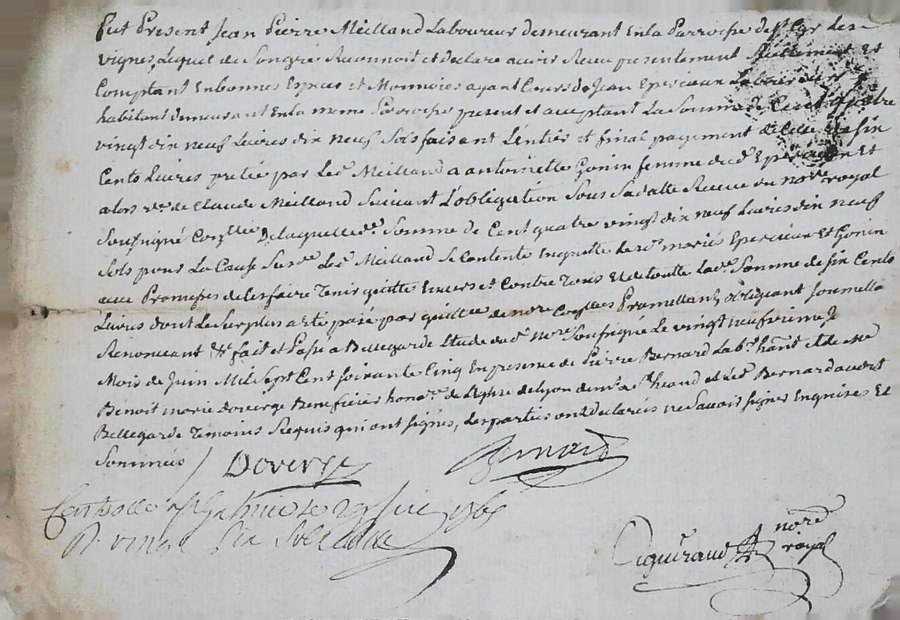 Fut Present Jean Pierre Meilland Laboureur Demeurant En la Parroisse de St Cyr les
vignes, Lequel de Son gré Reconnoit et declare avoir Receu presentement Reellement Et
Comptant En bonnes Especes et Monnoies ayant Cours de Jean Epercieux Laboureur
habitant demeurant En la meme Parroisse present et acceptant La Somme de Cent quatre
vingt dix neuf Livres dix neuf Sols faisant L'entier et final payement de Celle de Six
Cents Livres pretée par Led. Meilland a antoinette Gonin femme dud. Epercieux Et
alors ve. de Claude Meilland Suivant L'obligation Sous Sa datte Receue du nore. royal
Soussigné Conllée De laquelle de. Somme de Cent quatre vingt dix neuf Livres dix neuf
Sols pour La Cause Susde. Led. Meilland Se Contente En quitte Epercieux Et Gonin
aux Promesses de Les faire Tenir quitte Envers et Contre Tous Et de toutte Lade. Somme de Six Cents
Livres dont Le Surplus a eté paié par quitte de nore. Promettant obligeant Soumettant
Renonceant &a fait et Passé a Bellegarde Etude dud. nore. Soussigné Le vingt neufvieme J
Mois de Juin Mil Sept Cent Soixante Cinq En presence de Pierre Bernard Labr. hant
Benoit marie Doverge Beneficier honore. de L'eglise de Lyon et led. Bernard audit
Bellegarde Temoins Requis qui ont Signés, Les parties ont declarés ne Savoir Signer Enquises Et
Sommées / Doverge Bernard
Controllé a St Galmier le 29 Juin 1765
R. vingt Six Sols
Siguiraud nore. royal